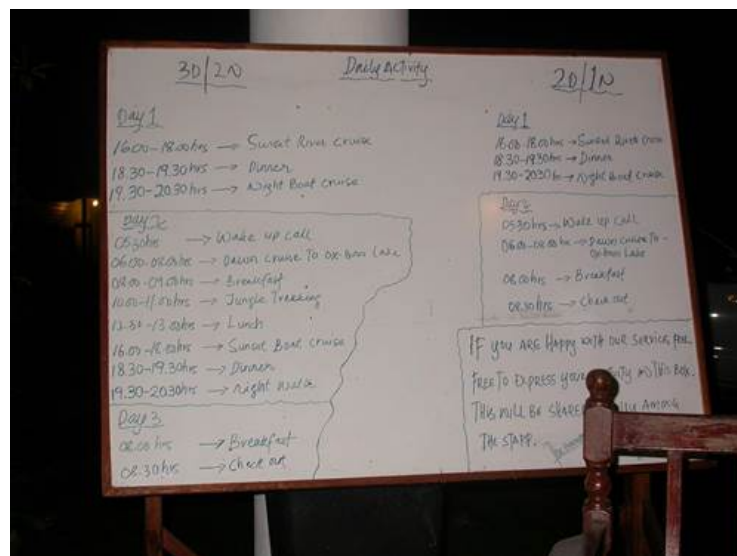 3D/2N
Daily Activity
2D/1N
Day 1
16.00-18.00hrs → Sunset River Cruise
18.30-19.30hrs → Dinner
19.30-20.30hrs → Night Boat Cruise
Day 2
05.30hrs → Wake up call
06.00-08.00hrs → Dawn Cruise To Ox-bow Lake
08.00-09.00hrs → Breakfast
10.00-11.00hrs → Jungle Tracking
12.30-13.00hrs → Lunch
16.00-18.00hrs → Sunset Boat Cruise
18.30-19.30hrs → Dinner
19.30-20.30hrs → Night Walk
Day 3
08.00hrs → Breakfast
08.30hrs → Check out
Day 1
16.00-18.00hrs → Sunset River Cruise
18.30-19.30hrs → Dinner
19.30-20.30hrs → Night Boat Cruise
Day 2
05.30hrs → Wake up Call
06.00-08.00hrs → Dawn Cruise To
Ox-bow Lake
08.00hrs → Breakfast
08.30hrs → Check out
IF you ARE Happy WITH OUR SERVICES FEEL
FREE TO EXPRESS YOUR IN THIS BOX.
THIS WILL BE SHARED AMONG
THE STAFF.